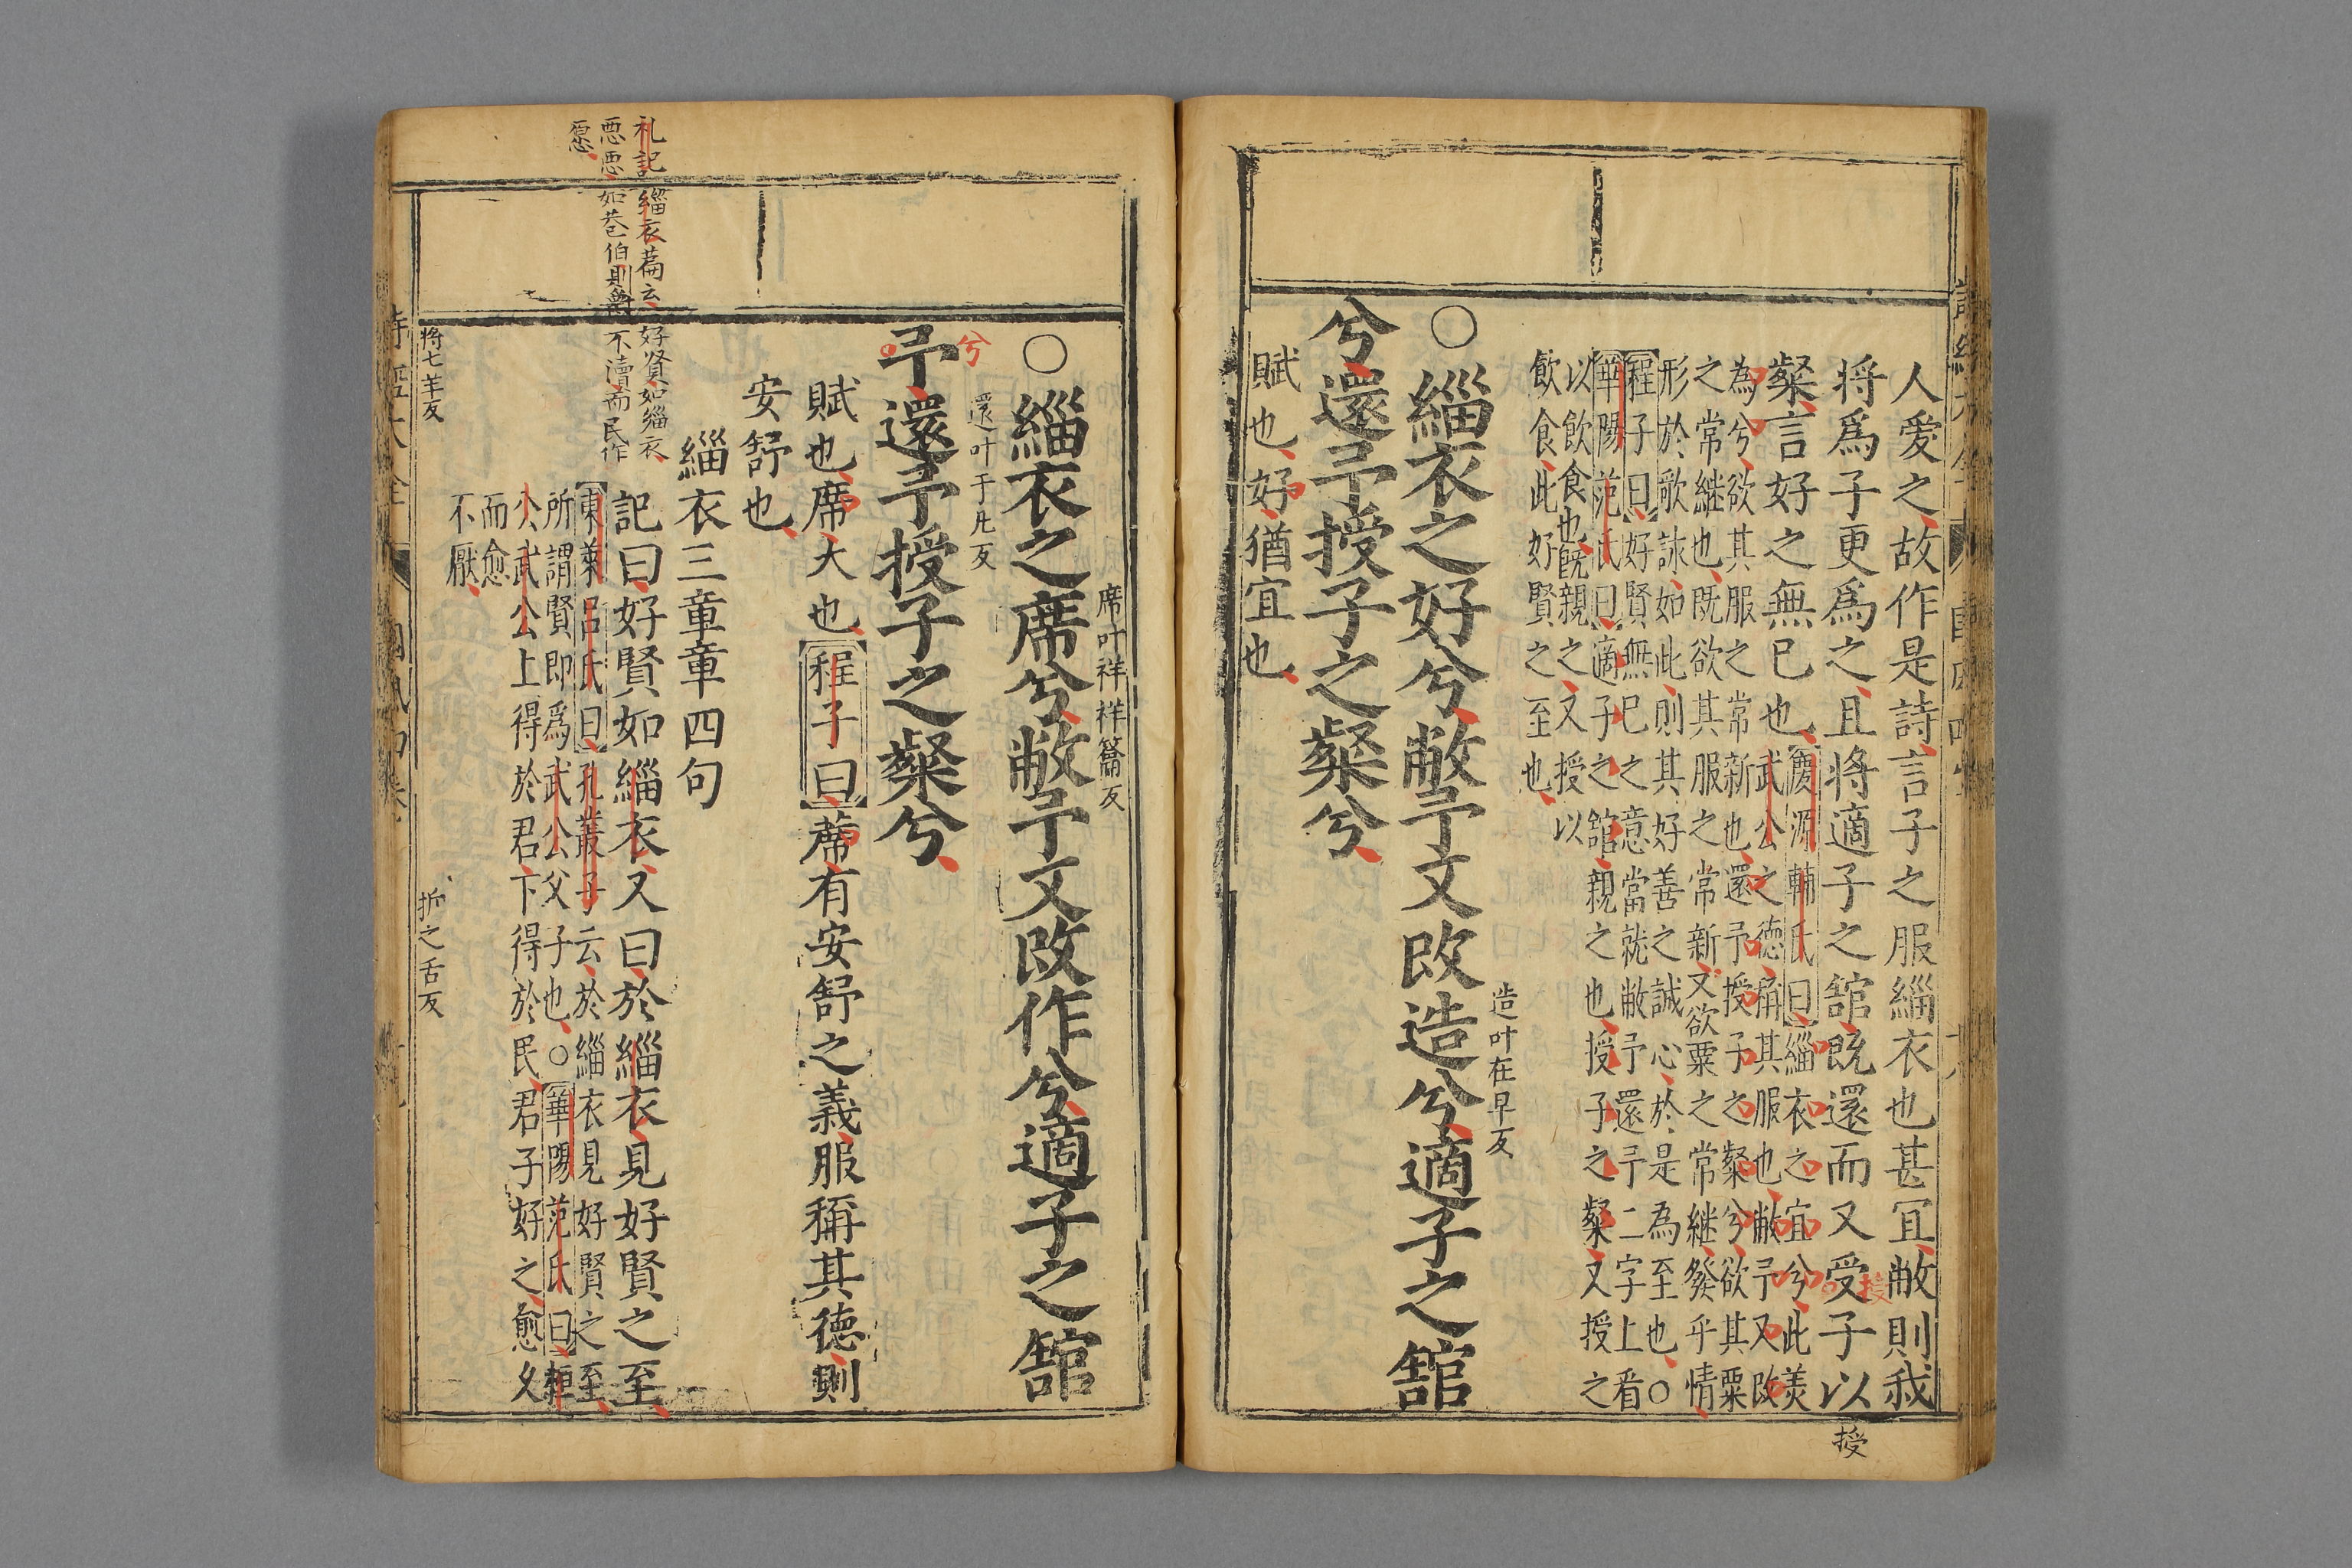 人愛之故作是詩言子之服緇衣也甚冝敝則我
将爲子更爲之且將適子之舘旣還而又受子以
粲言好之無已也
慶源輔氏曰緇衣之宜兮此美
武公之德稱其服也敝予又改
為兮欲其服之常新也還予授子之粲兮欲其粟
之常継也既欲其服之常新又欲粟之常継發乎情
形於歌詠如此則其好善之誠心於是為至也○
程子曰好賢無已之意當就敝予還予二字上看
華陽范氏曰適子之舘親之也授子之粲又授之
以飲食也既親之又授以
飲食此好賢之至也
○緇衣之好兮敝予又改造兮適子之舘
造叶在早反
兮還予授子之粲兮
賦也好猶宜也
授
授
席叶祥祥籥反
○緇衣之席兮敝予又改作兮適子之舘
還叶于凡反
兮
予還予授子之粲兮
賦也席大也程子曰蓆有安舒之義服稱其德則
安舒也
緇衣三章章四句
記曰好賢如緇衣又曰於緇衣見好賢之至
東萊呂氏曰孔叢子云於緇衣見好賢之至
所謂賢即爲武公父子也○華陽范氏曰桓
公武公上得於君下得於民君子好之愈久
而愈
不厭
礼記緇衣篇云好贤如緇衣
悪悪如巷伯則爵不瀆而民作
愿
將七羊反
折之舌反
詩經大全
國風四卷